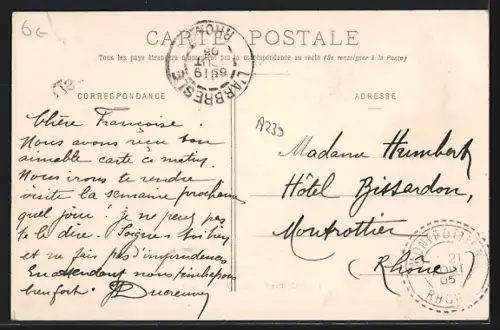 6G
CARTE POSTALE
Tous les pays étrangers n'acceptent pas la correspondance au recto (Se renseigner à la Poste)
L'ARBRESLE
RHONE
19
OUT
05
CORRESPONDANCE
ADRESSE
A239
Chère Françoise.
Nous avons reçu ton
aimable carte ce matin.
Nous irons te rendre
visite la semaine prochaine
quel jour! je ne peux pas
te le dire. Soigne toi bien
et ne fais pas d'imprudences
En attendant nous t'embrassons
bien fort.
Madame Humbert
Hôtel Bissardon,
Montrottier
(Rhône)
MONTROTTIER
21
OUT
05
RHONE